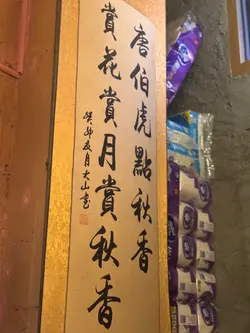 唐伯虎點秋香
賞花賞月賞秋香
癸卯友月大山書